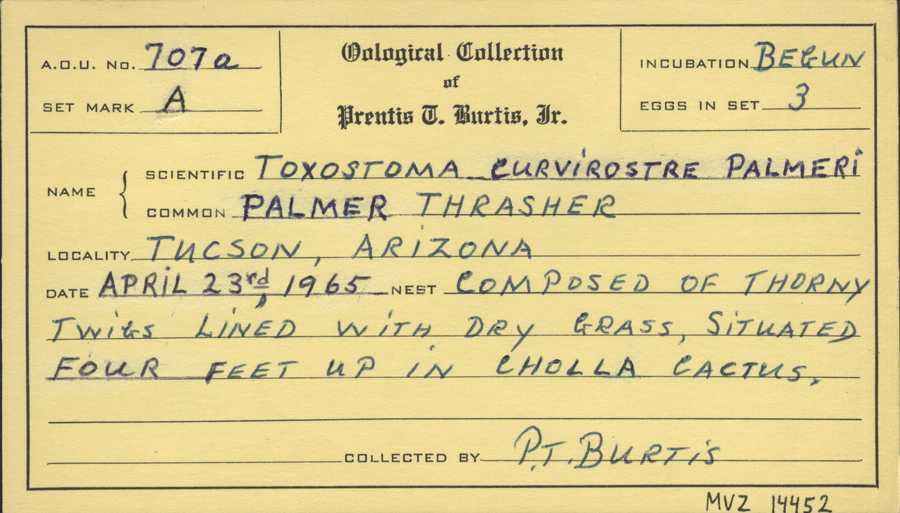 A.O.U. No. 707a
Oological Collection
INCUBATION BEGUN
SET MARK A
of
EGGS IN SET 3
Prentis T. Burtis, Jr.
NAME { SCIENTIFIC TOXOSTOMA CURVIROSTRE PALMERI
COMMON PALMER THRASHER
LOCALITY TUCSON, ARIZONA
DATE APRIL 23rd, 1965 NEST COMPOSED OF THORNY
TWIGS LINED WITH DRY GRASS, SITUATED
FOUR FEET UP IN CHOLLA CACTUS.
COLLECTED BY P.T. BURTIS
MVZ 14452